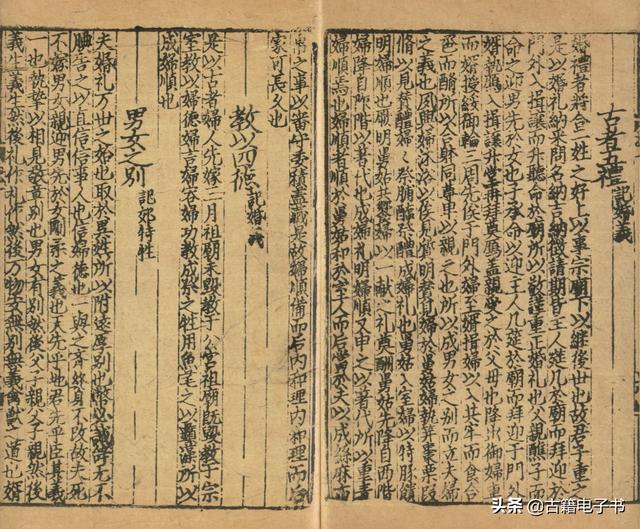 古者五禮 記婚義
婚禮者將合二姓之好上以事宗廟下以継後世也故君子重之
是以婚礼納采問名納吉納徵請期皆主人筵几於廟而拜迎於
門外入揖讓而升聽命於廟所以敬謹重正婚礼也父親醮子而
命之迎男先於女也子承命以迎主人几筵於廟而拜迎于門外
婿執鴈入揖讓升堂再拜奠鴈盖親受之於父母也降出御婦車
而婿授綏御輪三周先俟于門外婦至婿揖婦以入共牢而食合
卺而酳所以合躰同尊卑以親之也所以成男女之别而立夫婦
之義也夙興婦沐浴以俟見質明賛見婦於舅姑婦執笲棗栗段
脩以見賛醴婦婦祭脯醢祭醴成婦礼也舅姑入室婦以特豚饋
明婦順也厥明舅姑共饗婦以一献之礼奠酬舅姑先降自西階
婦降自阼階以著代也成婦礼明婦順又申之以著代所以重責
婦順焉也婦順者順於舅姑和於室人而后當於夫以成絲麻布
帛之事以審守委積盖藏是故婦順備而后内和理内和理而后
家可長久也
教以四德 記婚義
是以古者婦人先嫁三月祖廟未毁教于公宫祖廟既毁教于宗
室教以婦德婦言婦容婦功教成祭之牲用魚芼之以蘋藻所以
成婦順也
男女之别 記郊特牲
夫婚礼万世之始也取於異姓所以附遠厚别也幣必誠辞无不
腆告之以直信信事人也信婦德也一與之齊終身不改故夫死
不嫁男女親迎男先於女剛柔之義也天先乎地君先乎臣其義
一也執摯以相見敬章别也男女有别然後父子親父子親然後
義生義生然後礼作礼作然後万物安無别無義禽獸之道也婿
头条 @古籍电子书